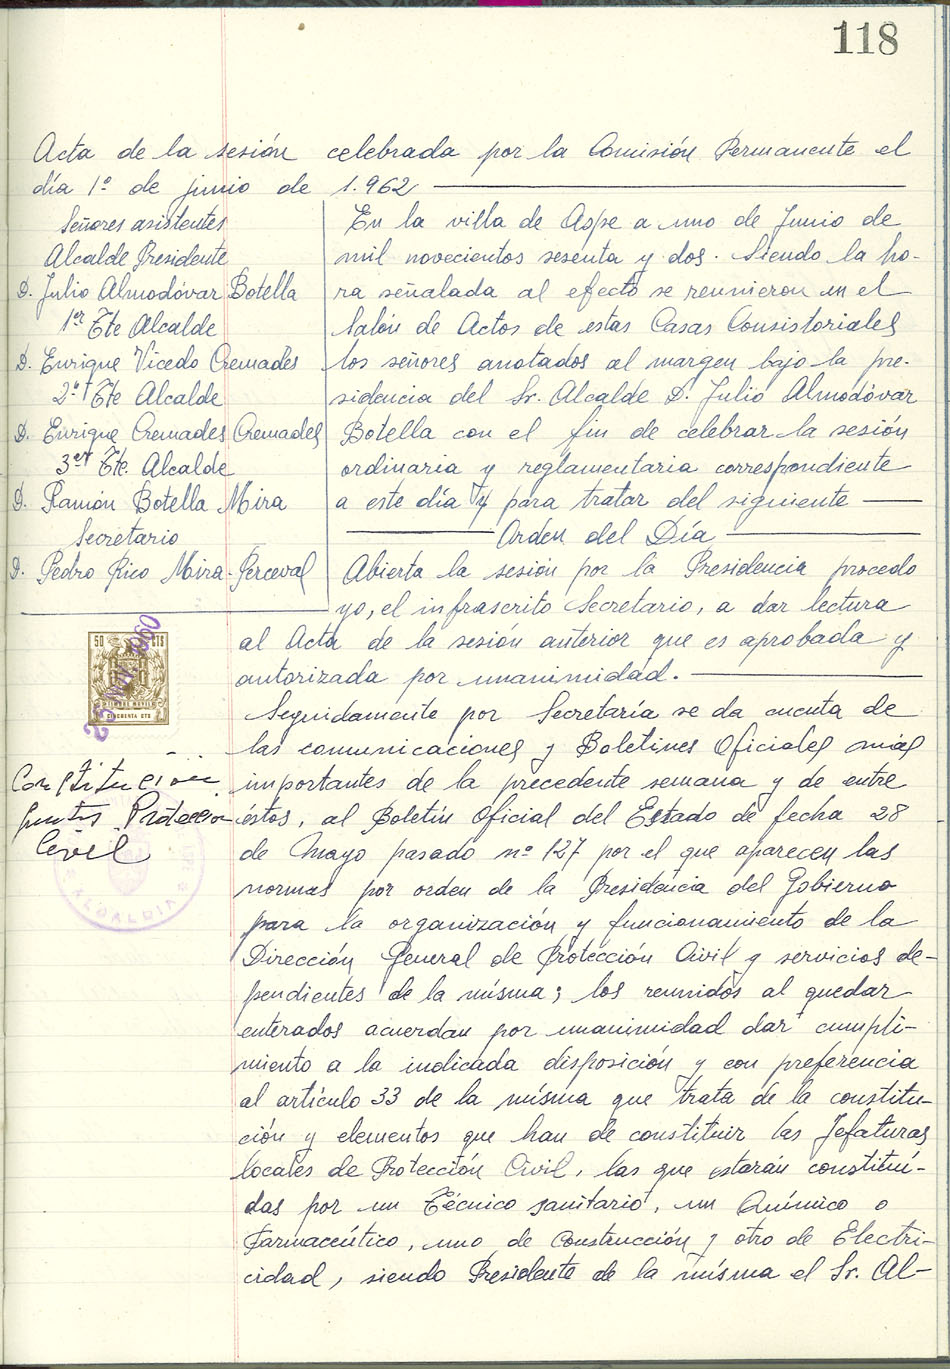 118
Acta de la sesión celebrada por la Comisión Permanente el
día 1º de junio de 1.962
Señores asistentes
Alcalde Presidente
D. Julio Almodóvar Botella
1er Tte Alcalde
D. Enrique Vicedo Cremades
2º Tte Alcalde
D. Enrique Cremades Cremades
3er Tte. Alcalde
D. Ramón Botella Mira
Secretario
D. Pedro Rico Mira-Perceval
En la villa de Aspe a uno de Junio de
mil novecientos sesenta y dos. Siendo la ho-
ra señalada al efecto se reunieron en el
Salón de Actos de estas Casas Consistoriales
los señores anotados al margen bajo la pre-
sidencia del Sr. Alcalde D. Julio Almodóvar
Botella con el fin de celebrar la sesión
ordinaria y reglamentaria correspondiente
a este día y para tratar del siguiente
Orden del Día
Abierta la sesión por la Presidencia procedo
yo, el infrascrito Secretario, a dar lectura
al Acta de la sesión anterior que es aprobada y
autorizada por unanimidad.
50 CTS
TIMBRE MOVIL
CINCUENTA CTS
Constitución
Juntas Protección
Civil
ALCALDIA
Seguidamente por Secretaría se da cuenta de
las comunicaciones y Boletines Oficiales más
importantes de la precedente semana y de entre
éstos, al Boletín Oficial del Estado de fecha 28
de Mayo pasado nº 127 por el que aparecen las
normas por orden de la Presidencia del Gobierno
para la organización y funcionamiento de la
Dirección General de Protección Civil y servicios de-
pendientes de la misma; los reunidos al quedar
enterados acuerdan por unanimidad dar cumpli-
miento a la indicada disposición y con preferencia
al artículo 33 de la misma que trata de la constitu-
ción y elementos que han de constituir las Jefaturas
locales de Protección Civil, las que estarán constituí-
das por un Técnico sanitario, un Químico o
Farmaceútico, uno de Construcción y otro de Electri-
cidad, siendo Presidente de la misma el Sr. Al-